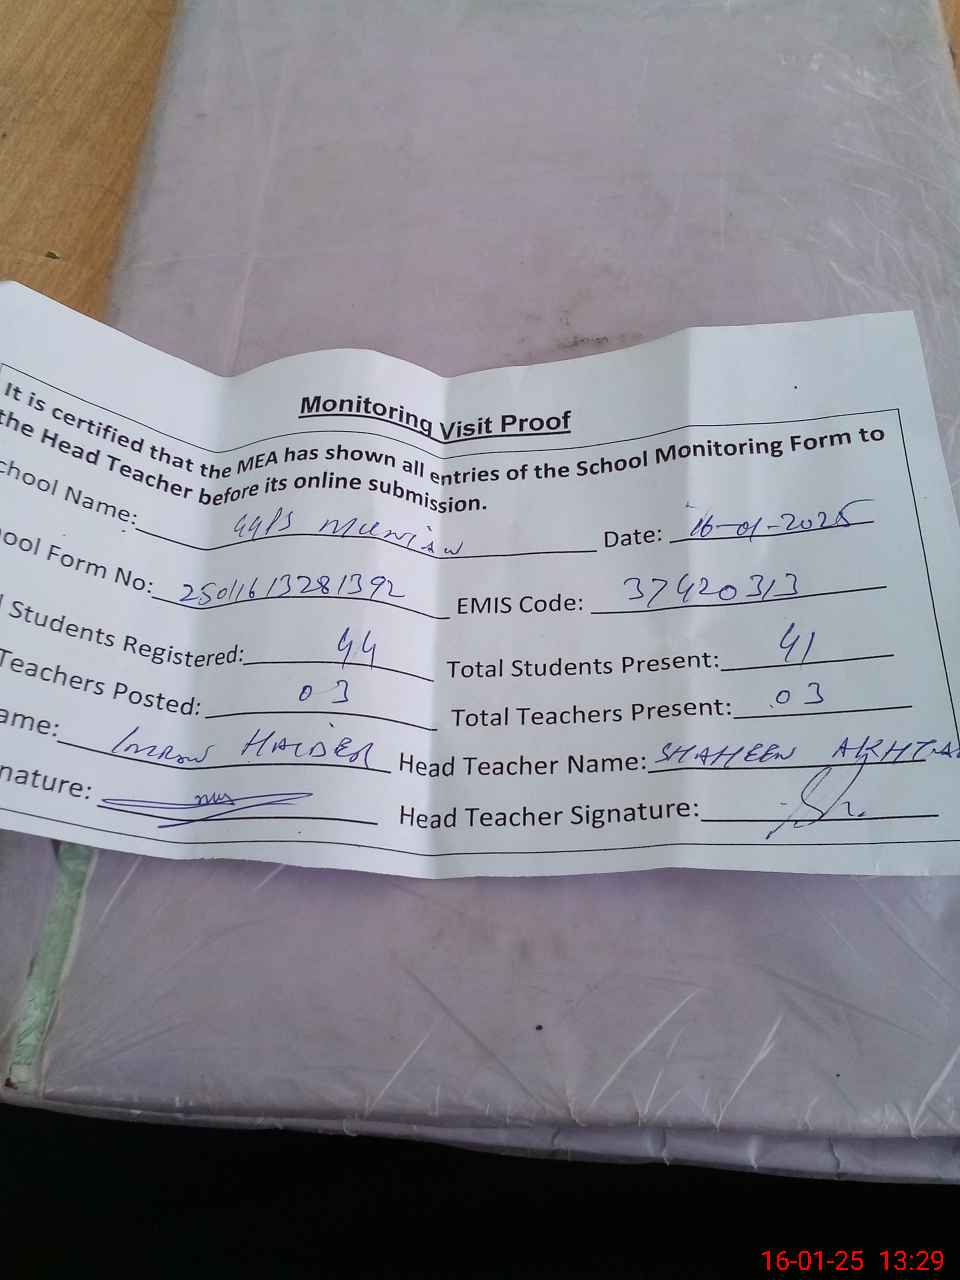 Monitoring Visit Proof
It is certified that the MEA has shown all entries of the School Monitoring Form to
the Head Teacher before its online submission.
chool Name: GGPS Date: 16-01-2025
ool Form No: 25011613281392 EMIS Code: 37420313
l Students Registered: 44 Total Students Present: 41
Teachers Posted: 03 Total Teachers Present: 03
ame: Imran HAIDER Head Teacher Name: SHAHEEN AKHTA
nature: Head Teacher Signature:
16-01-25 13:29